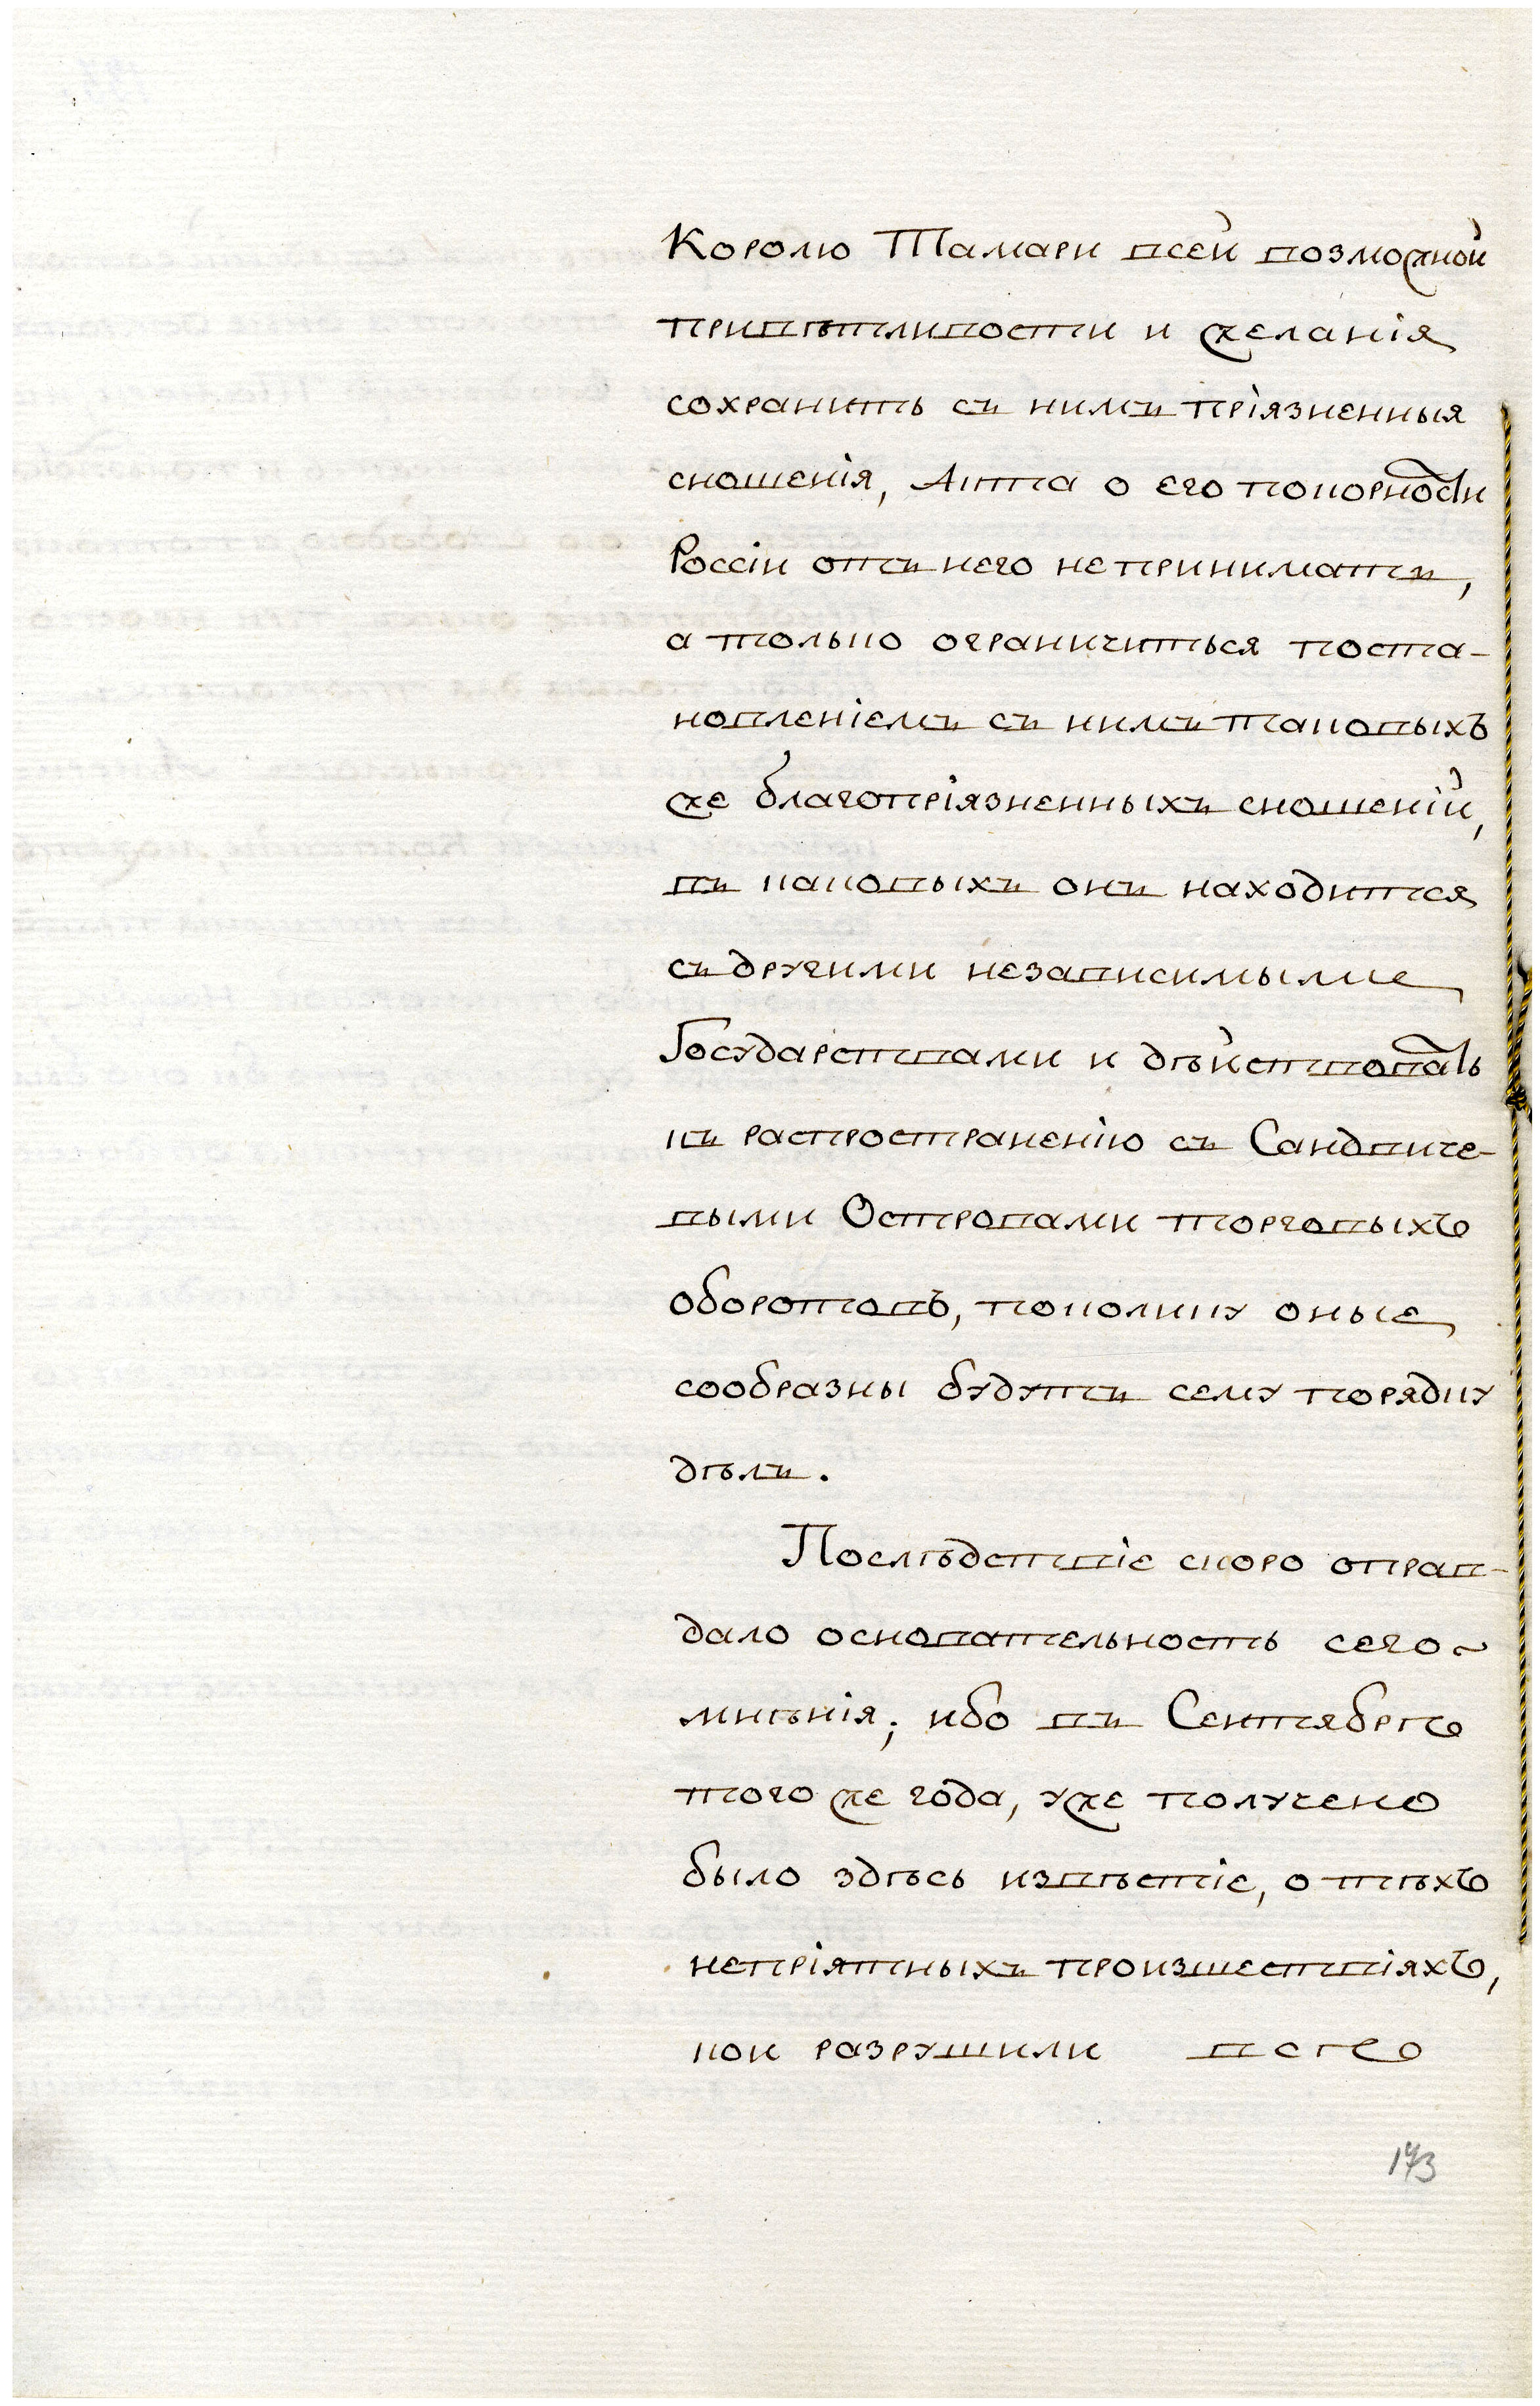 Королю Тамари всей возможной
привѣтливости и желанія
сохранить съ нимъ пріязненныя
сношенія, Акта о его покорности
Россіи отъ него не приниматъ,
а только ограничиться поста-
новленіемъ съ нимъ таковыхъ
же благопріязненныхъ сношеній,
въ каковыхъ онъ находится
съ другими независимыми
Государствами и дѣйствовать
къ распространенію съ Сандвиче-
выми Островами торговыхъ
оборотовъ, поколику оные
сообразны будутъ сему порядку
дѣлъ.
Послѣдствіе скоро оправ-
дало основательность сего
мнѣнія; ибо въ Сентябрѣ
того же года, уже получено
было здѣсь извѣстіе, о тѣхъ
непріятныхъ произшествіяхъ,
кои разрушили всѣ
173